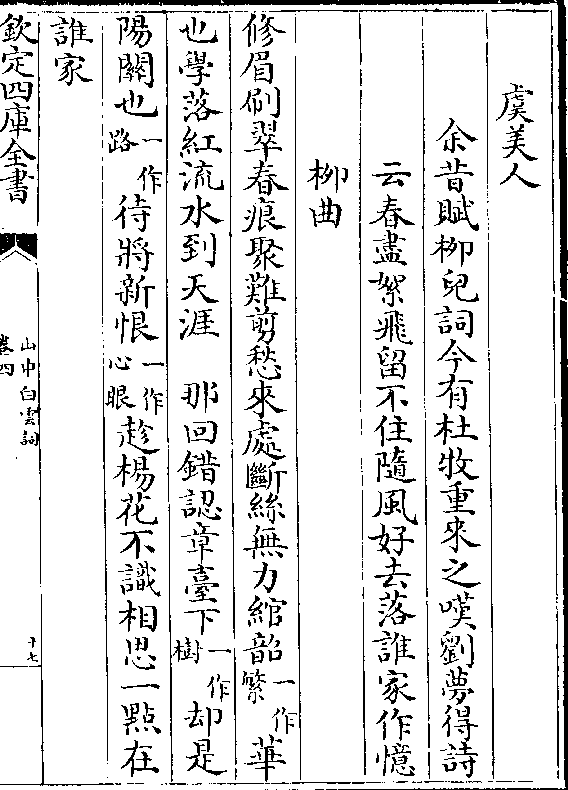 虞美人
余昔賦柳兒詞今有杜牧重來之嘆劉夢得詩
云春盡絮飛留不住隨風好去落誰家作憶
柳曲
修眉刷翠春痕聚難剪愁來處斷絲無力綰韶一作繁華
也學落紅流水到天涯 那回錯認章臺下一作樹却是
陽關也一作路待將新恨一作心眼趁楊花不識相思一點在
誰家
欽定四庫全書
山中白雲詞
卷四
十七